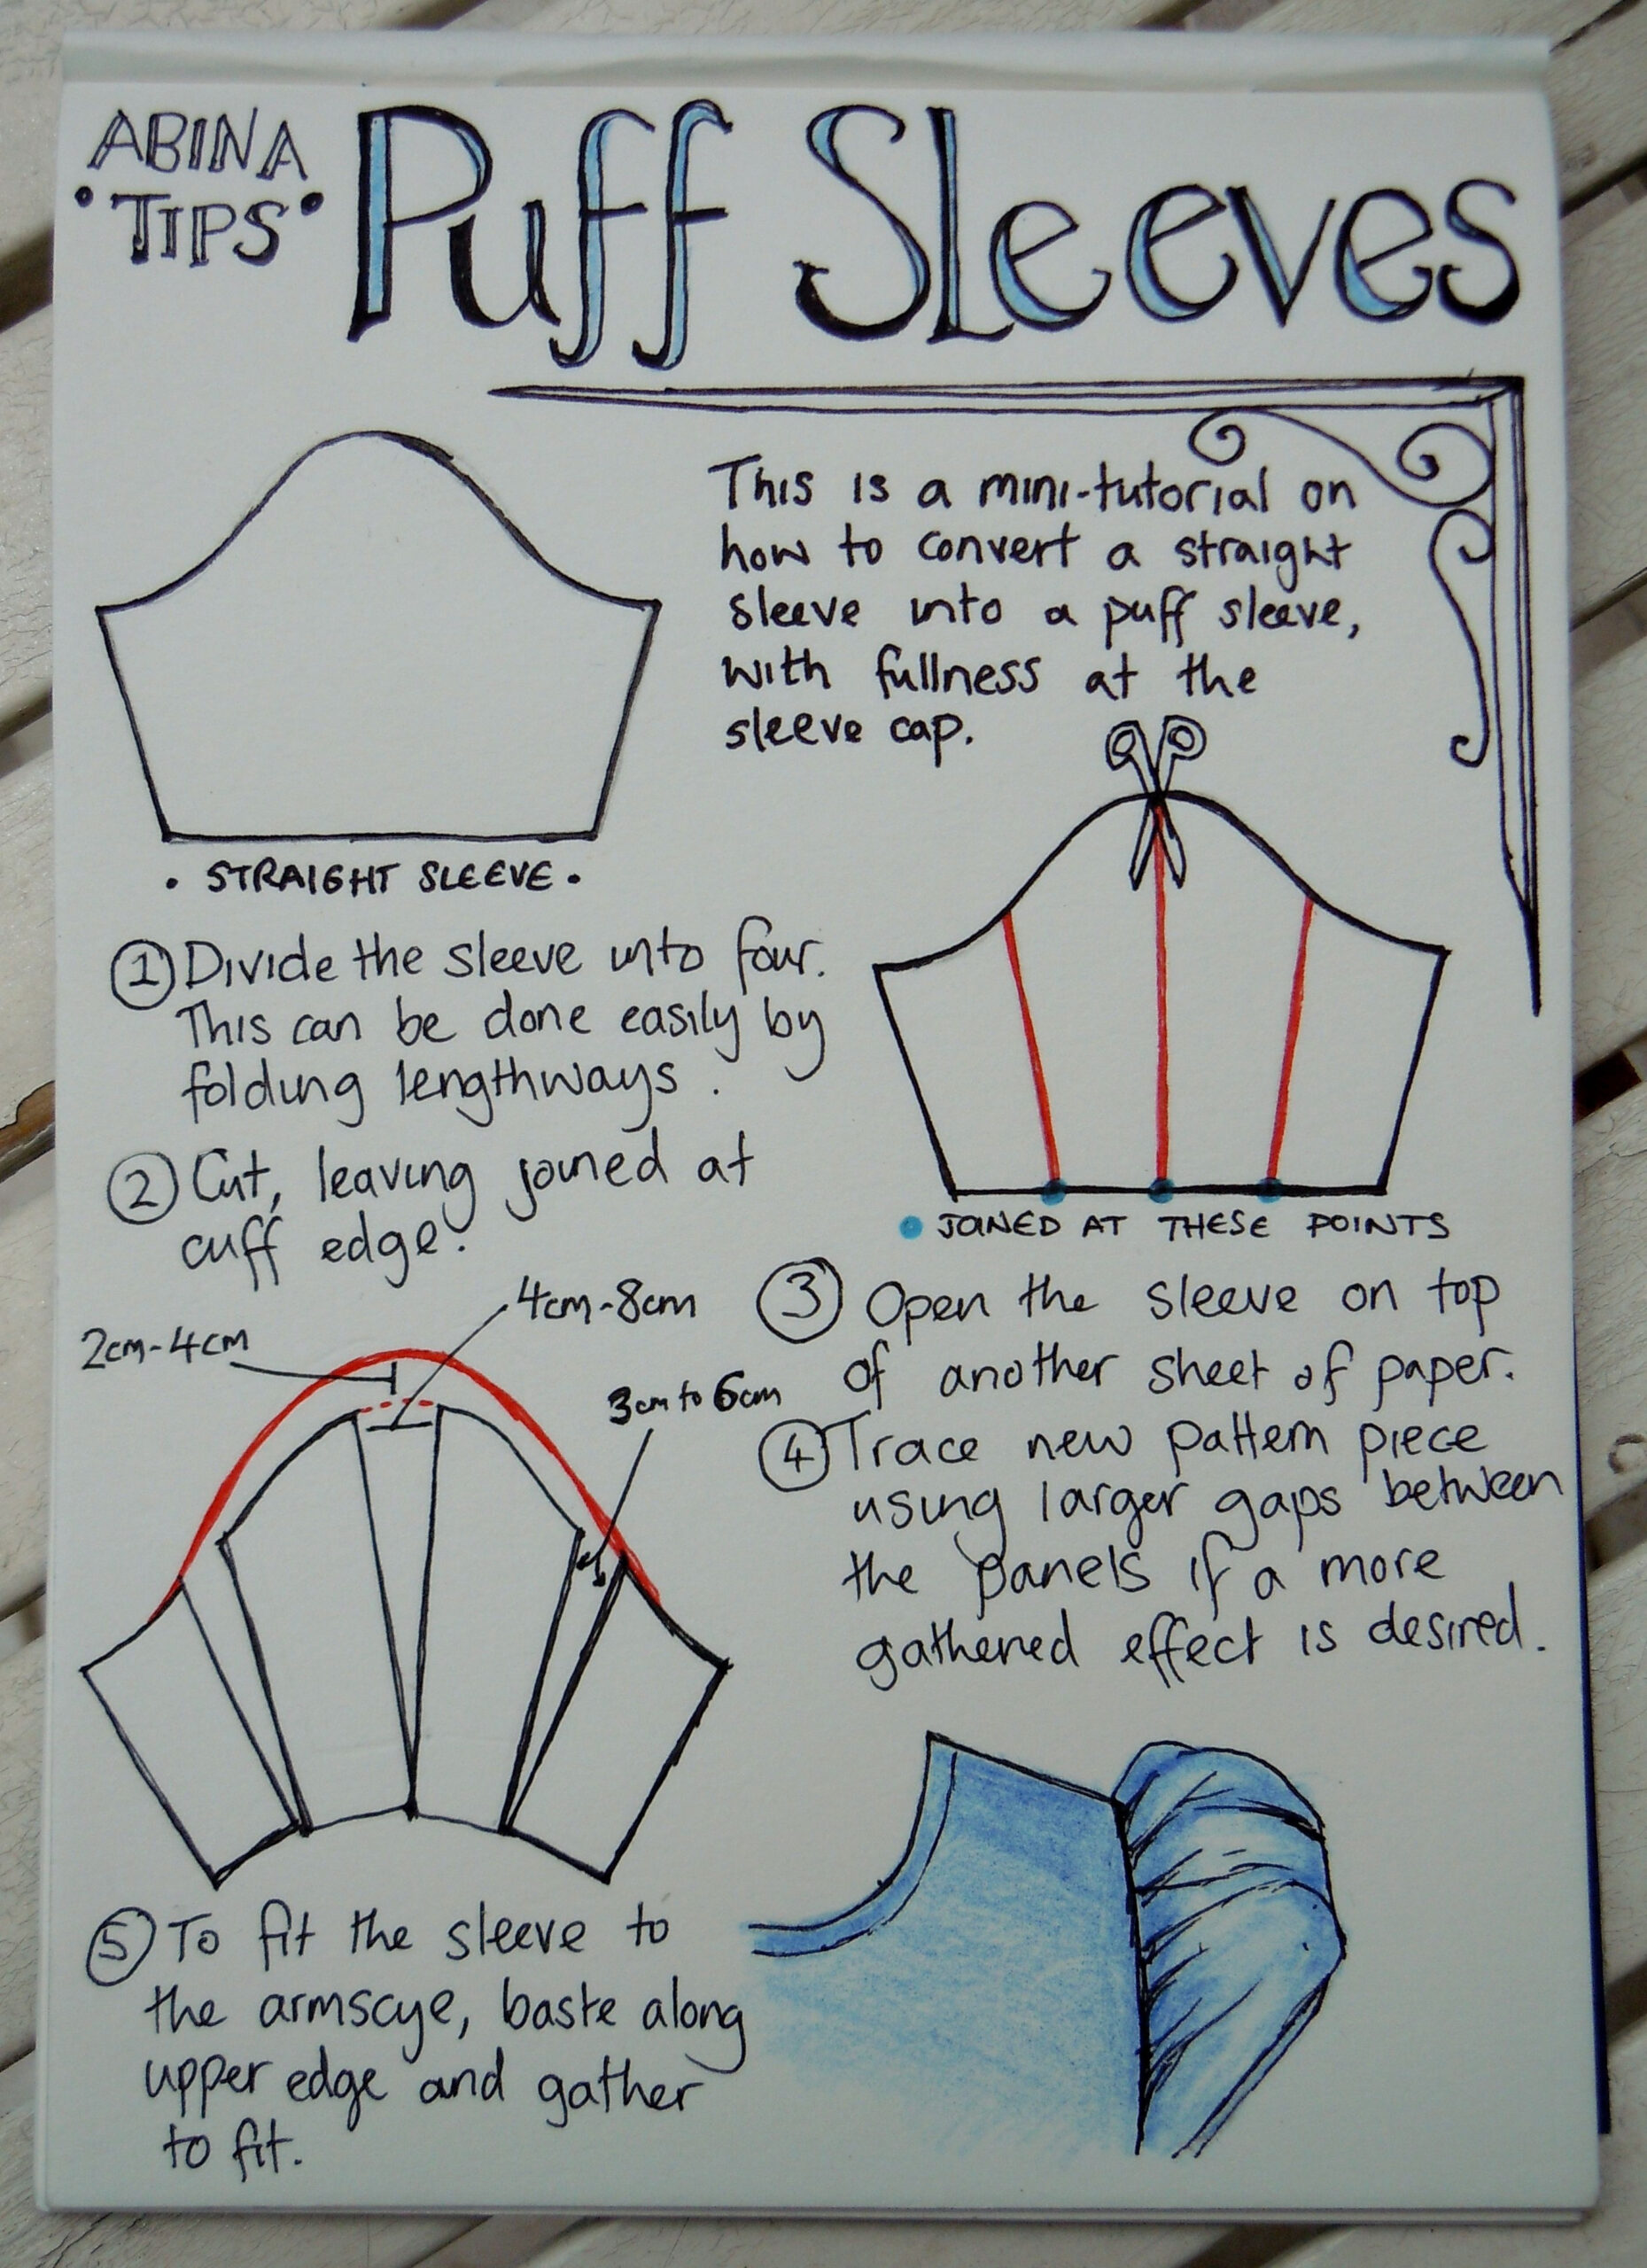 ABINA
•TIPS•
Puff Sleeves
This is a mini-tutorial on
how to convert a straight
sleeve into a puff sleeve,
with fullness at the
sleeve cap.
• STRAIGHT SLEEVE •
① Divide the sleeve into four.
This can be done easily by
folding lengthways.
② Cut, leaving joined at
cuff edge.
JOINED AT THESE POINTS
2cm-4cm
4cm-8cm
3cm to 6cm
③ Open the sleeve on top
of another sheet of paper.
④ Trace new pattern piece
using larger gaps between
the panels if a more
gathered effect is desired.
⑤ To fit the sleeve to
the armscye, baste along
upper edge and gather
to fit.